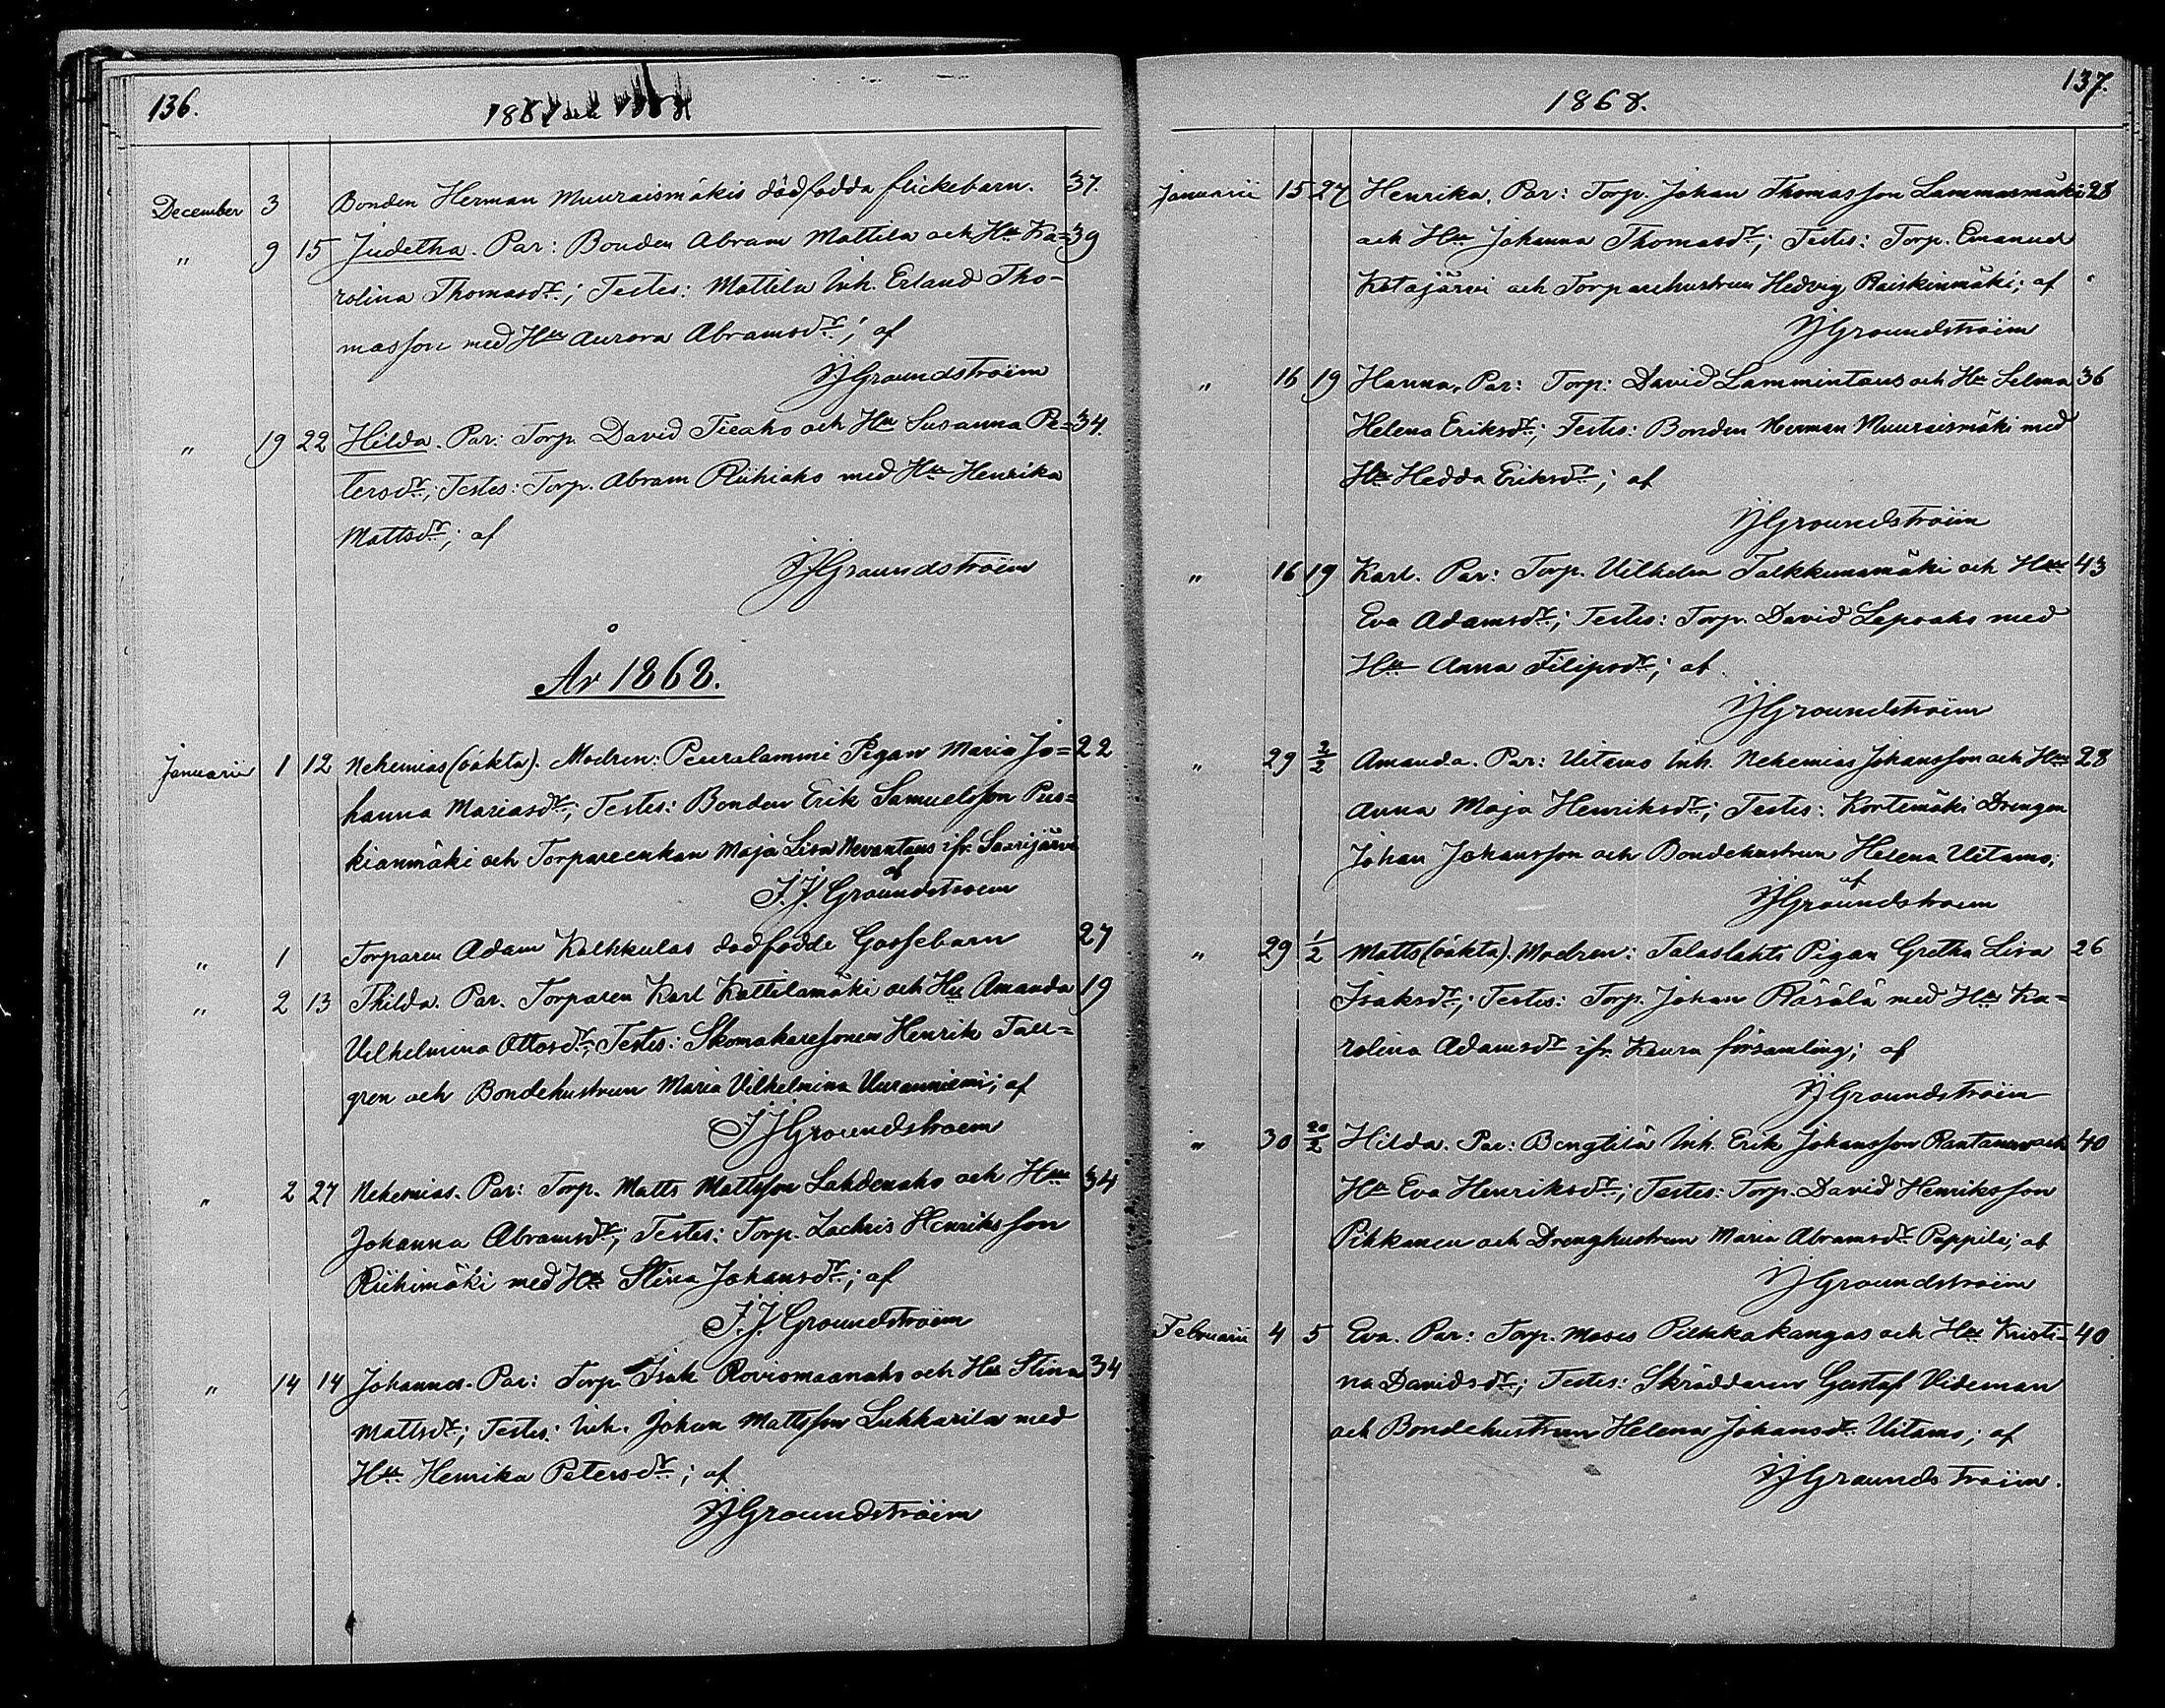 136.
1867
December 3 Bonden Herman Muuraismäkis dödfödda flickebarn. 37.
" 9 15 Judetha. Par: Bonden Abram Mattila och Hu Ka= 39
rolina Thomasdr; Testes: Mattila Inh. Erland Tho-
masson med Hu Aurora Abramsdr; af
JJGroundstroëm
" 19 22 Hilda. Par: Torp. David Tieaho och Hu Susanna Pe= 34.
tersdr; Testes: Torp. Abram Riihiaho med Hu Henrika
Mattsdr; af
JJGroundstroëm
År 1868.
Januarii 1 12 Nehemias (oäkta). Modren: Peuralammi Pigan Maria Jo= 22
hanna Mariasdr; Testes: Bonden Erik Samuelsson Pus=
kianmäki och Torpareenkan Maja Lisa Nevantaus ifr. Saarijärvi
af
J.J. Groundstroem
" 1 Torparen Adam Kalhkulas dödfödde Gossebarn 27
" 2 13 Thilda. Par. Torparen Karl Kattilamäki och Hu Amanda 19
Vilhelmina Ottosdr; Testes: Skomakaresonen Henrik Tall=
gren och Bondehustrun Maria Vilhelmina Vuranniemi; af
JJGroundstroem
" 2 27 Nehemias. Par: Torp. Matts Mattsson Lahdenaho och Hu 34
Johanna Abramsdr; Testes: Torp. Zachris Henriksson
Riihimäki med Hu Stina Johansdr; af
J.J. Groundstroëm
" 14 14 Johannes. Par: Torp. Isak Roviomaanaho och Hu Stina 34
Mattsdr; Testes: Inh. Johan Mattsson Lukkarila med
Hu Henrika Petersdr; af
JJGroundstroëm
137.
1868.
Januarii 15 27 Henrika. Par: Torp. Johan Thomasson Lammasmäki 28
och Hu Johanna Thomasdr; Testes: Torp. Emanuel
Kotajärvi och Torparehustrun Hedvig Raiskinmäki; af
JJGroundstroëm
" 16 19 Hanna. Par: Torp: David Lammintaus och Hu Selma 36
Helena Eriksdr; Testes: Bonden Herman Muuraismäki med
Hu Hedda Eriksdr; af
JJGroundstroëm
" 16 19 Karl. Par: Torp. Vilhelm Talkkunamäki och Hu 43
Eva Adamsdr; Testes: Torp. David Lepoaho med
Hu Anna Filipsdr; af
JJGroundstroëm
" 29 2/2 Amanda. Par: Uitamo Inh. Nehemias Johansson och Hu 28
Anna Maja Henriksdr; Testes: Kortemäki Drengen
Johan Johansson och Bondehustrun Helena Uitamo;
af
JJGroundstroem
" 29 1/2 Matts (oäkta). Modren: Talaslahti Pigan Gretha Lisa 26
Isaksdr; Testes: Torp. Johan Räsälä med Hu Ka=
rolina Adamsdr ifr. Keuru församling; af
JJGroundstroëm
" 30 20/2 Hilda. Par: Bengtilä Inh. Erik Johansson Rantanen och 40
Hu Eva Henriksdr; Testes: Torp. David Henriksson
Pihkanen och Drenghustrun Maria Abramsdr Pappila; af
JJGroundstroëm
Februarii 4 5 Eva. Par: Torp. Moses Pihkakangas och Hu Kristi= 40
na Davidsdr; Testes: Skräddaren Gustaf Videman
och Bondehustrun Helena Johansdr Uitamo; af
JJGroundstroëm.